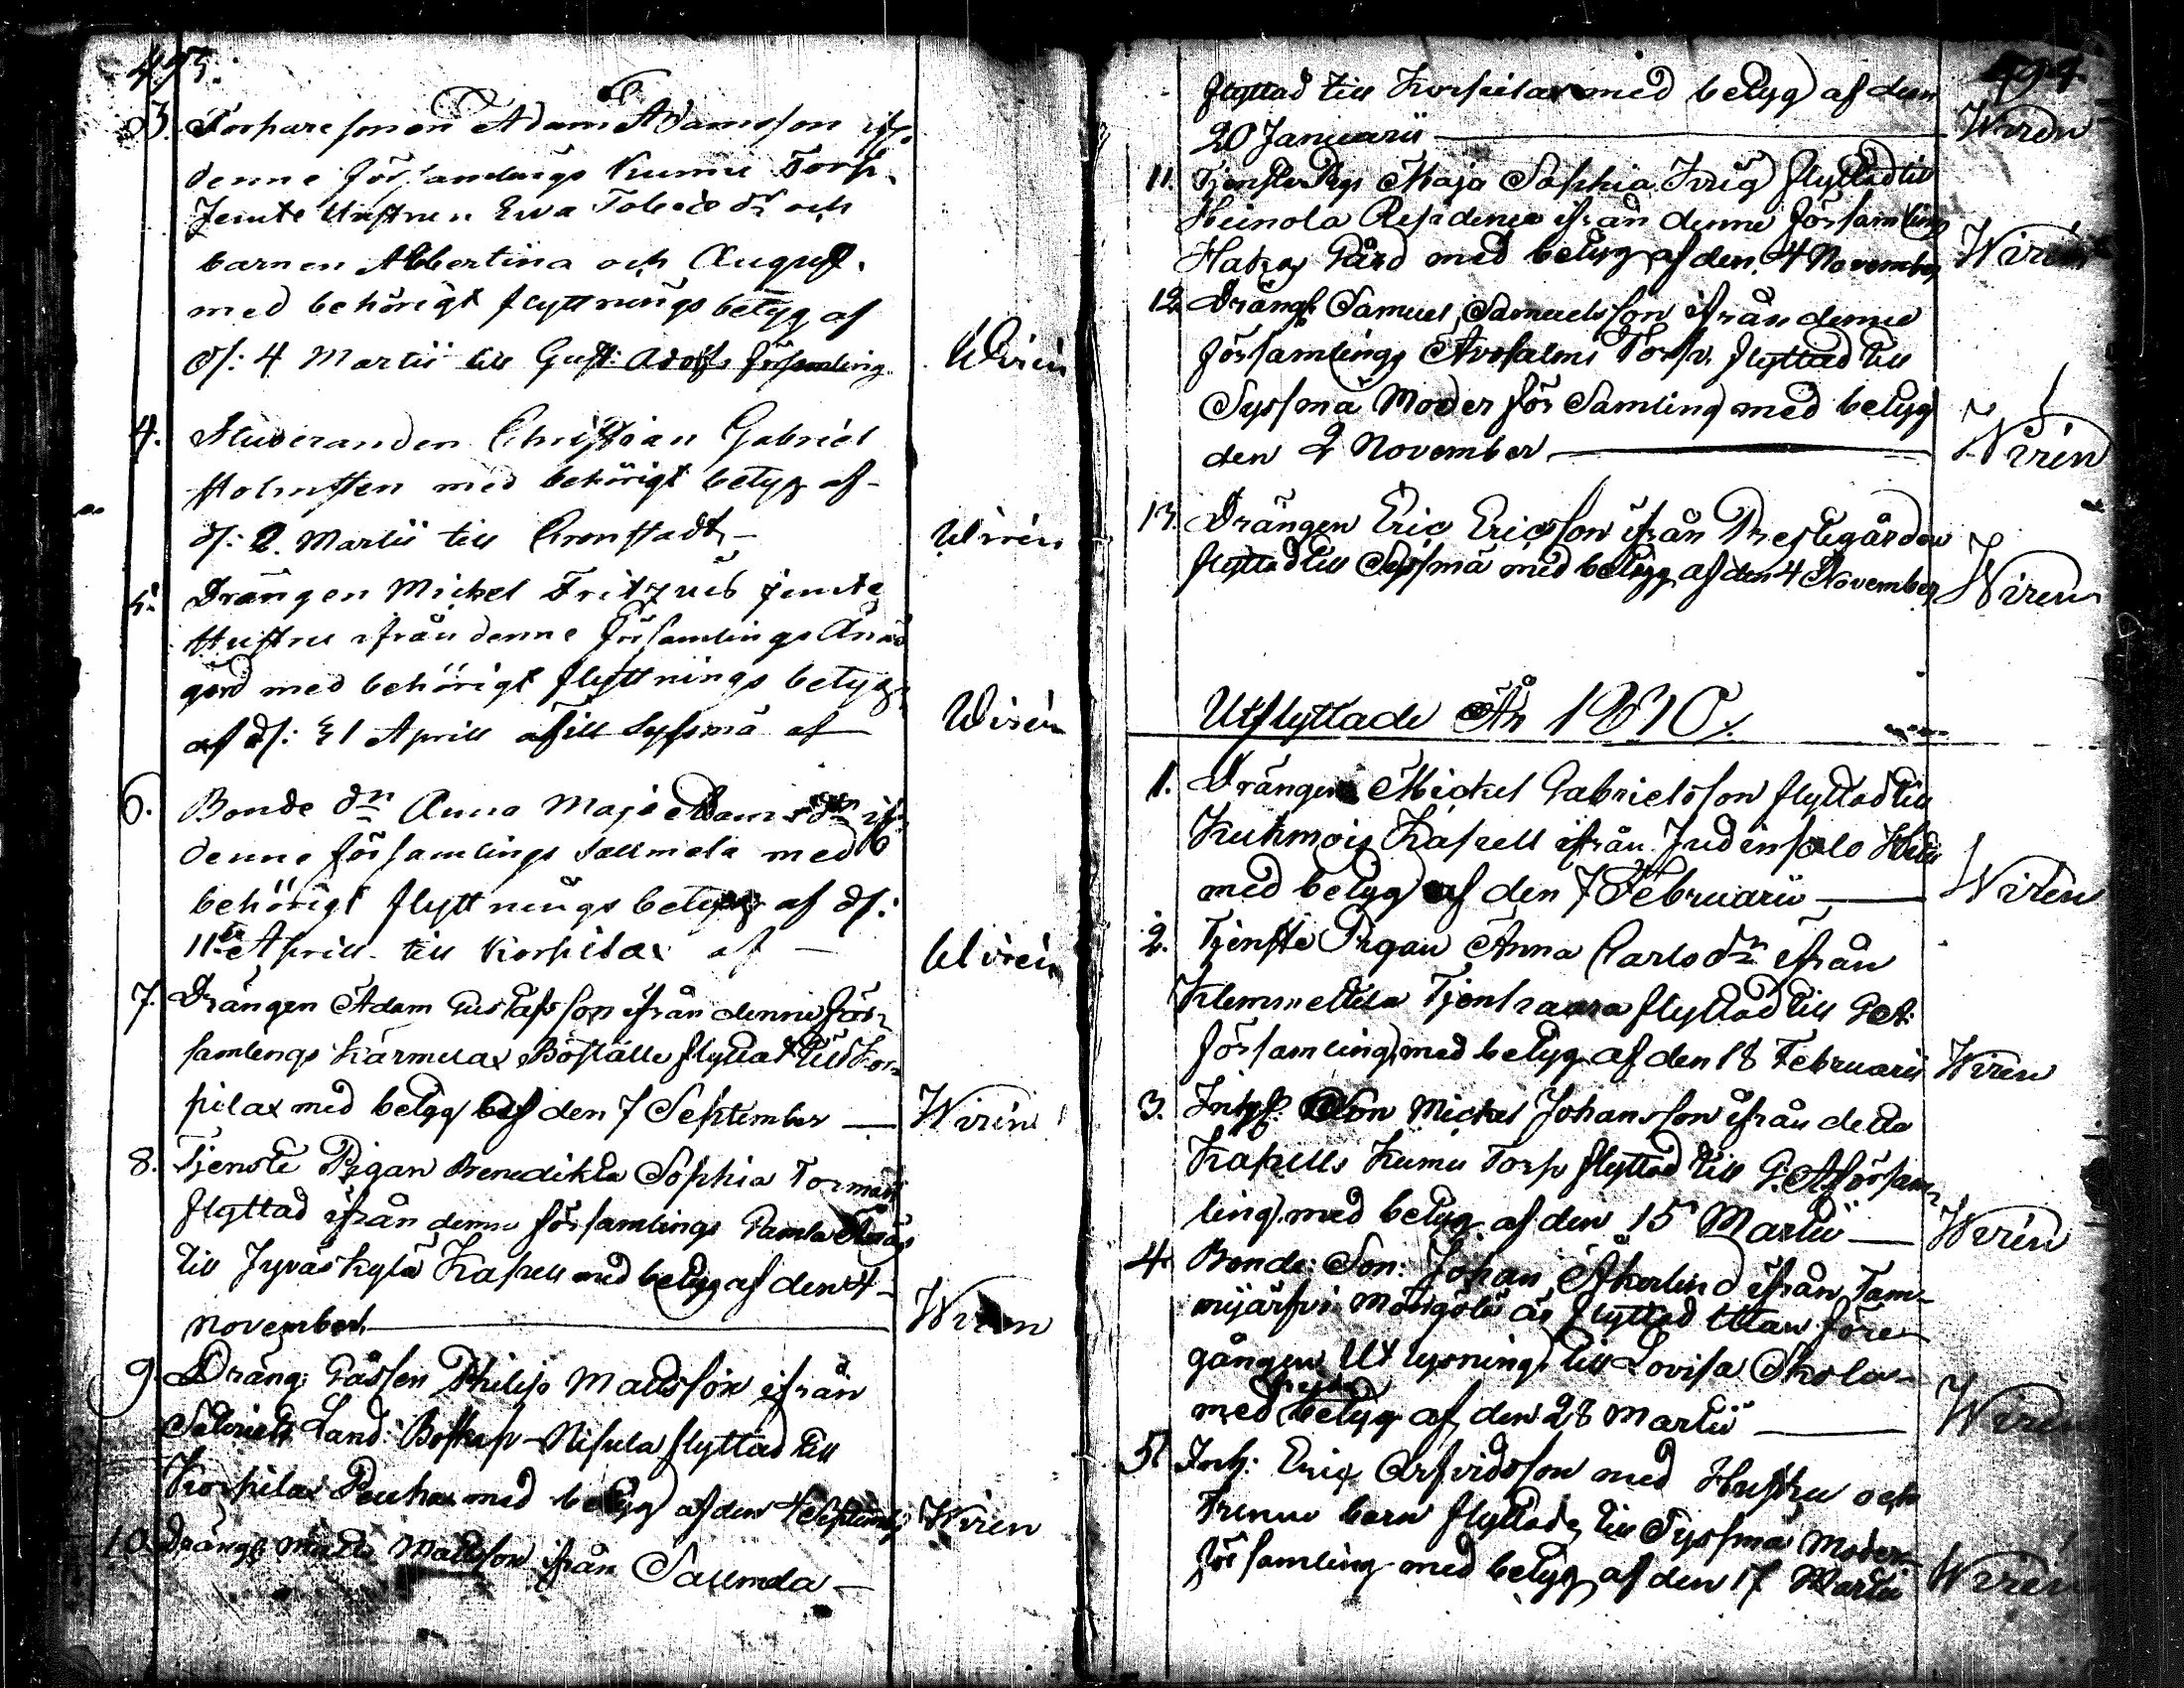 3. Torpare sonen Adam Adamsson ifr.
denne församlings Kumu Torp.
Jemte Hustrun Eva Tobiæ dr och
barnen Albertina och August.
med behörigt flyttnings betyg af
d: 4 Martii till Gust: Adolfs församling. Wirén
4. Studeranden Christian Gabriel
Holmsten med behörigt betyg af
d: 2. Martii till Cronstadt, – Wirén
5. Drängen Mickel Fritzus jemte
Hustru ifrån denne församlings
gård med behörigt flyttnings betyg
af d: 21 Aprill till Syssmä af Wirén
6. Bonde dn Anna Maja Adams dn ifr.
denne församlings Sallmela med
behörigt flyttnings betyg af d:
11te Aprill till Korpilax af – Wirén
7. Drängen Adam Gustafsson ifrån denne för-
samlings Kärmelax Boställe flyttat till Kor-
pilax med betyg af den 7 September — Wirén
8. Tjenste Pigan Benedikta Sophia
flyttad ifrån denne församlings Gamla
till Jyväskylä Kapell med betyg af den 4
November. Wirén
9. Dräng: Gåssen Philip Mattsson ifrån
Land: Boskap Nisula flyttad till
Korpilax med betyg af den 4 September Wiren
10. Drängen Matts Mattsson ifrån Sallmela –
flyttad till Korpilax med betyg af den
20 Januarii — Wirén
11. Tjenste Pigs Maja Sophia Krig flyttad till
Heinola Residence ifrån denne församling
Gård med betyg af den 4 November Wirén
12. Drängs Samuel Samuelsson ifrån denne
församlings Torp. flyttad till
Syssmä Moder för Samling med betyg
den 2 November — Wirén
13. Drängen Eric Ericsson ifrån Prestegården
flyttad till Syssmä med betyg af den 4 November Wirén
Utflyttade År 1810.
1. Drängen Mickel Gabrielsson flyttad till
Kuhmois Kapell ifrån
med betyg af den 7 Februarii — Wirén
2. Tjenste Pigan Anna Carls dn ifrån
Klemmettila flyttad till G:A:
församling, med betyg af den 18 Februarii Wirén
3. Son Mickel Johansson ifrån detta
Kapells Kumu Torp flyttad till G: A: försam-
ling med betyg af den 15 Martii — Wirén
4. Bonde: Son: Johan Åkerlind ifrån Tam-
mijärfvi är flyttad Utan före-
gången Utlysning till Lovisa Skola
med betyg af den 28 Martii — Wirén
5. Inh: Eric Arfvidsson med Hustru och
Trenne barn flyttade till Syssmä Moder
församling med betyg af den 17 Martii Wirén